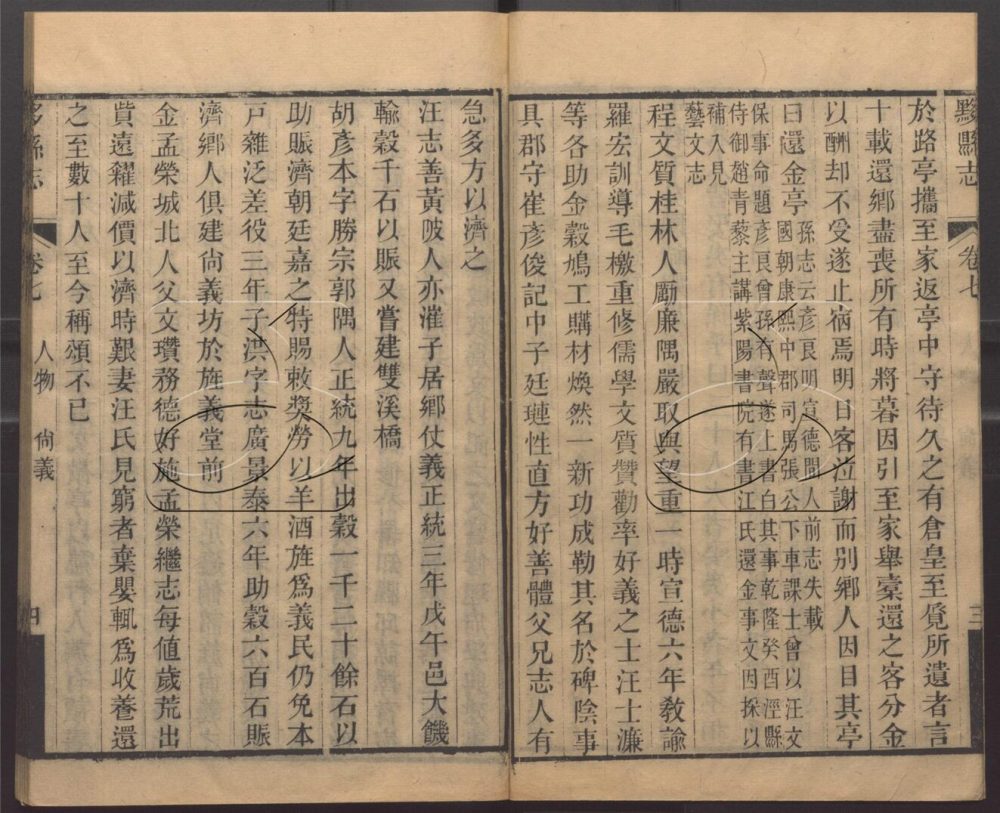 黟縣志
卷七
三
於路亭攜至家返亭中守待久之有倉皇至覓所遺者言
十載還鄉盡喪所有時將暮因引至家舉橐還之客分金
以酬却不受遂止宿焉明日客泣謝而別鄉人因目其亭
曰還金亭
孫志云彥良明宣德間人前志失載
國朝康熙中郡司馬張公下車課士曾以汪文
保事命題彥良曾孫有聲遂上書白其事乾隆癸酉涇縣
侍御趙青藜主講紫陽書院有書江氏還金事文因採以
補入見
藝文志
程文質桂林人勵廉隅嚴取與望重一時宣德六年敎諭
羅宏訓導毛檄重修儒學文質贊勸率好義之士汪士濂
等各助金穀鳩工購材煥然一新功成勒其名於碑陰事
具郡守崔彥俊記中子廷璉性直方好善體父兄志人有
急多方以濟之
汪志善黃陂人亦濰子居鄉仗義正統三年戊午邑大饑
輸穀千石以賑又嘗建雙溪橋
胡彥本字勝宗郭隅人正統九年出穀一千二十餘石以
助賑濟朝廷嘉之特賜敕獎勞以羊酒旌爲義民仍免本
戶雜泛差役三年子洪字志廣景泰六年助穀六百石賑
濟鄉人俱建尙義坊於旌義堂前
金孟榮城北人父文瓚務德好施孟榮繼志每値歲荒出
貲遠糴減價以濟時艱妻汪氏見窮者棄嬰輒爲收養還
之至數十人至今稱頌不已
黟縣志
卷七
人物
尙義
四